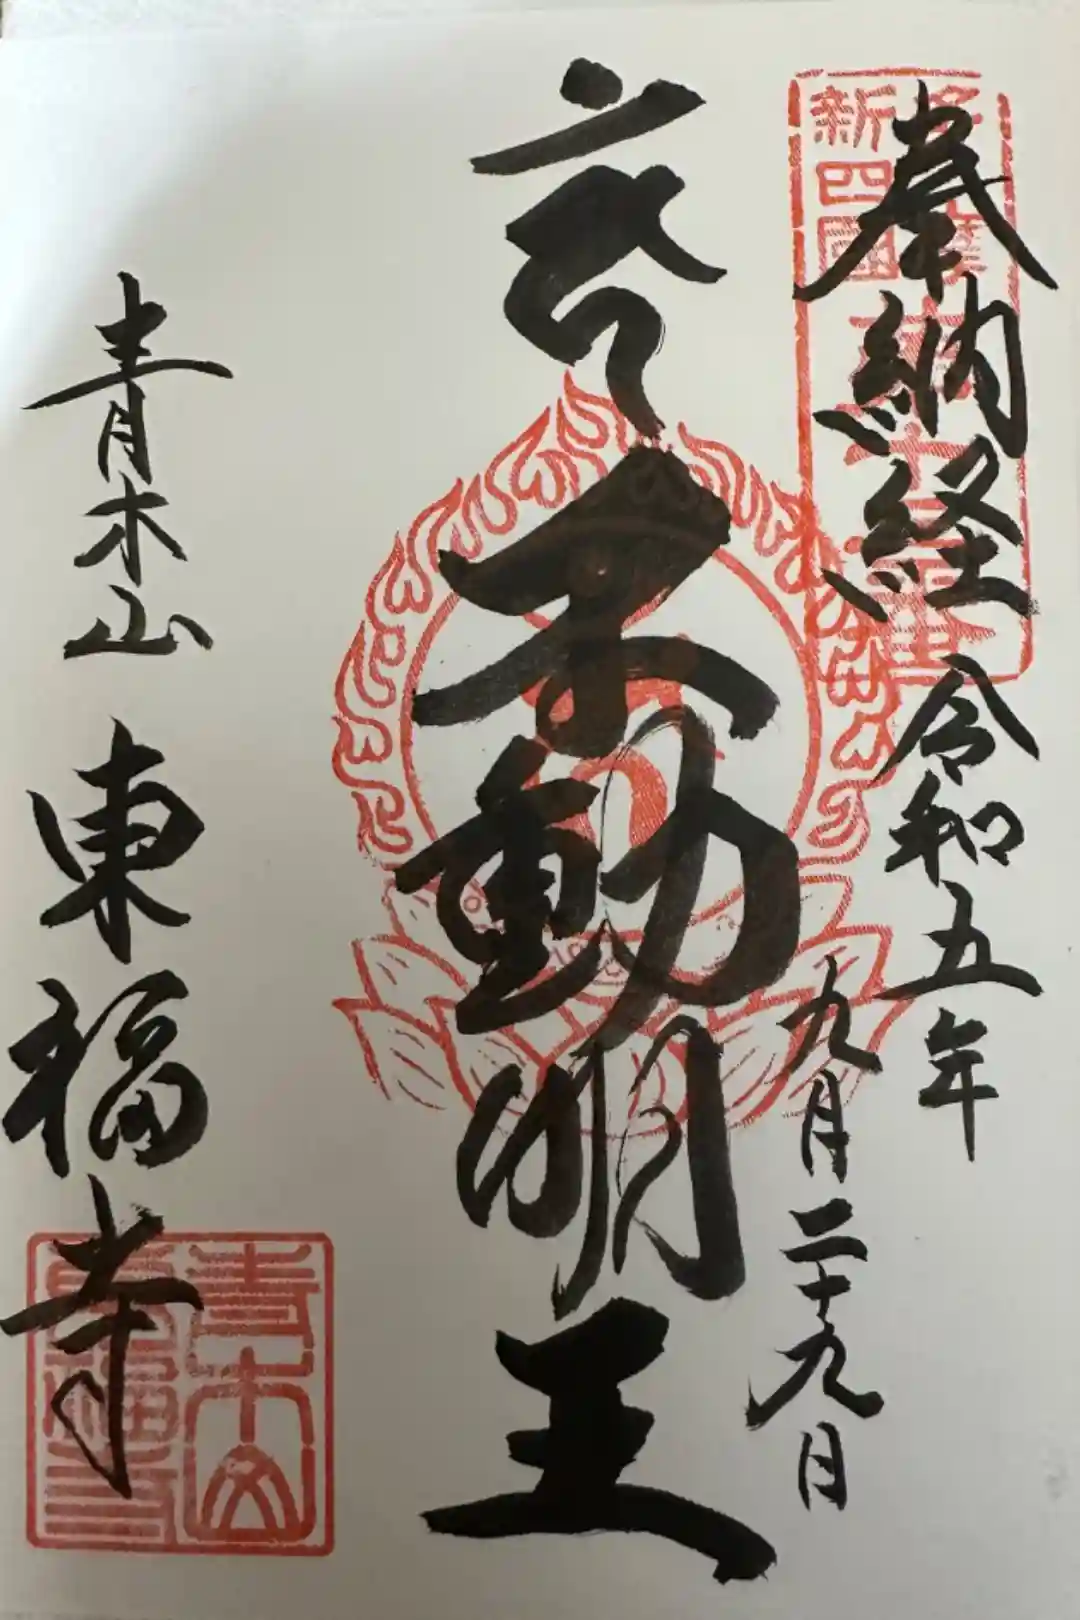 奉納経
令和五年
九月二十九日
不動明王
青木山
東福寺
新四國
青木山
東福寺